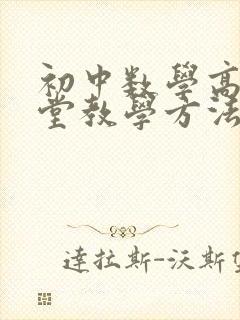 初中数學高
堂教學方法
達拉斯-沃斯堡